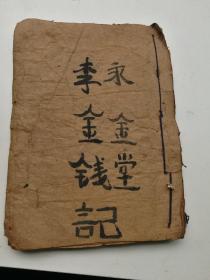 永金堂
李金钱記